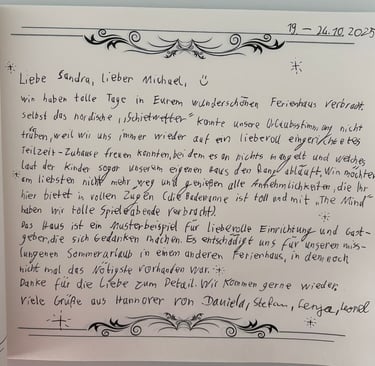 19. – 24.10.2025
Liebe Sandra, lieber Michael, ☺
wir haben tolle Tage in Eurem wunderschönen Ferienhaus verbracht.
selbst das nordische „Schietwetter" konnte unsere Urlaubsstimmung nicht
trüben, weil wir uns immer wieder auf ein liebevoll eingerichtetes
Teilzeit-Zuhause freuen konnten, bei dem es an nichts mangelt und welches
laut der Kinder sogar unserem eigenen Haus den Rang abläuft. Wir möchten
am liebsten nicht mehr weg und genießen alle Annehmlichkeiten, die Ihr
hier bietet in vollen Zügen (die Badewanne ist toll und mit „The Mind"
haben wir tolle Spieleabende verbracht).
Das Haus ist ein Musterbeispiel für liebevolle Einrichtung und Gast-
geber, die sich Gedanken machen. Es entschädigt uns für unseren miss-
lungenen Sommerurlaub in einem anderen Ferienhaus, in dem noch
nicht mal das Nötigste vorhanden war.
Danke für die Liebe zum Detail. Wir kommen gerne wieder,
Viele Grüße aus Hannover von Daniela, Stefan,